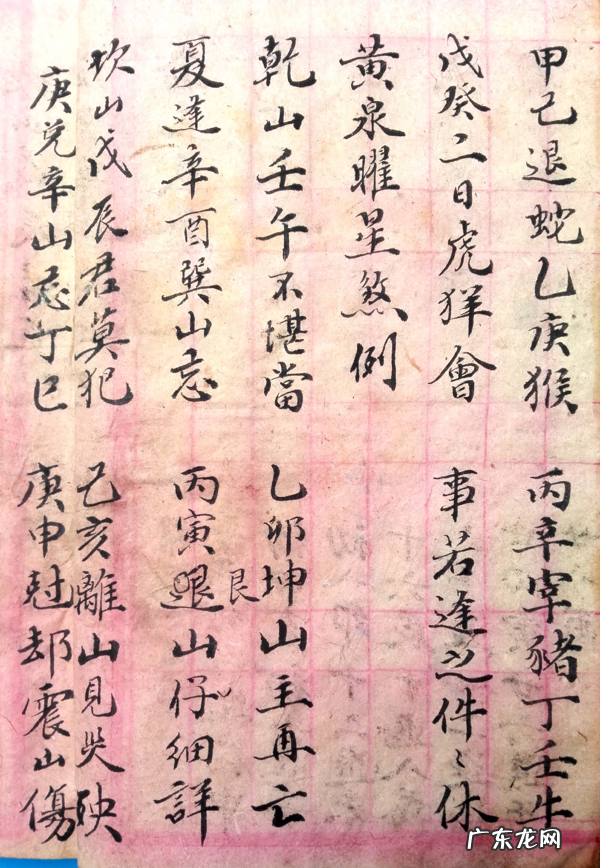 甲己退蛇乙庚猴 丙辛宰豬丁壬牛
戊癸二日虎羊會 事若逢之件〻休
黃泉曜星煞例
乾山壬午不堪當 乙卯坤山主再亡
夏逢辛酉巽山忌 丙寅退艮山仔細詳
坎山戊辰君莫犯 己亥離山見災殃
庚兌辛山忌丁巳 庚申尅却震山傷
广东龙网